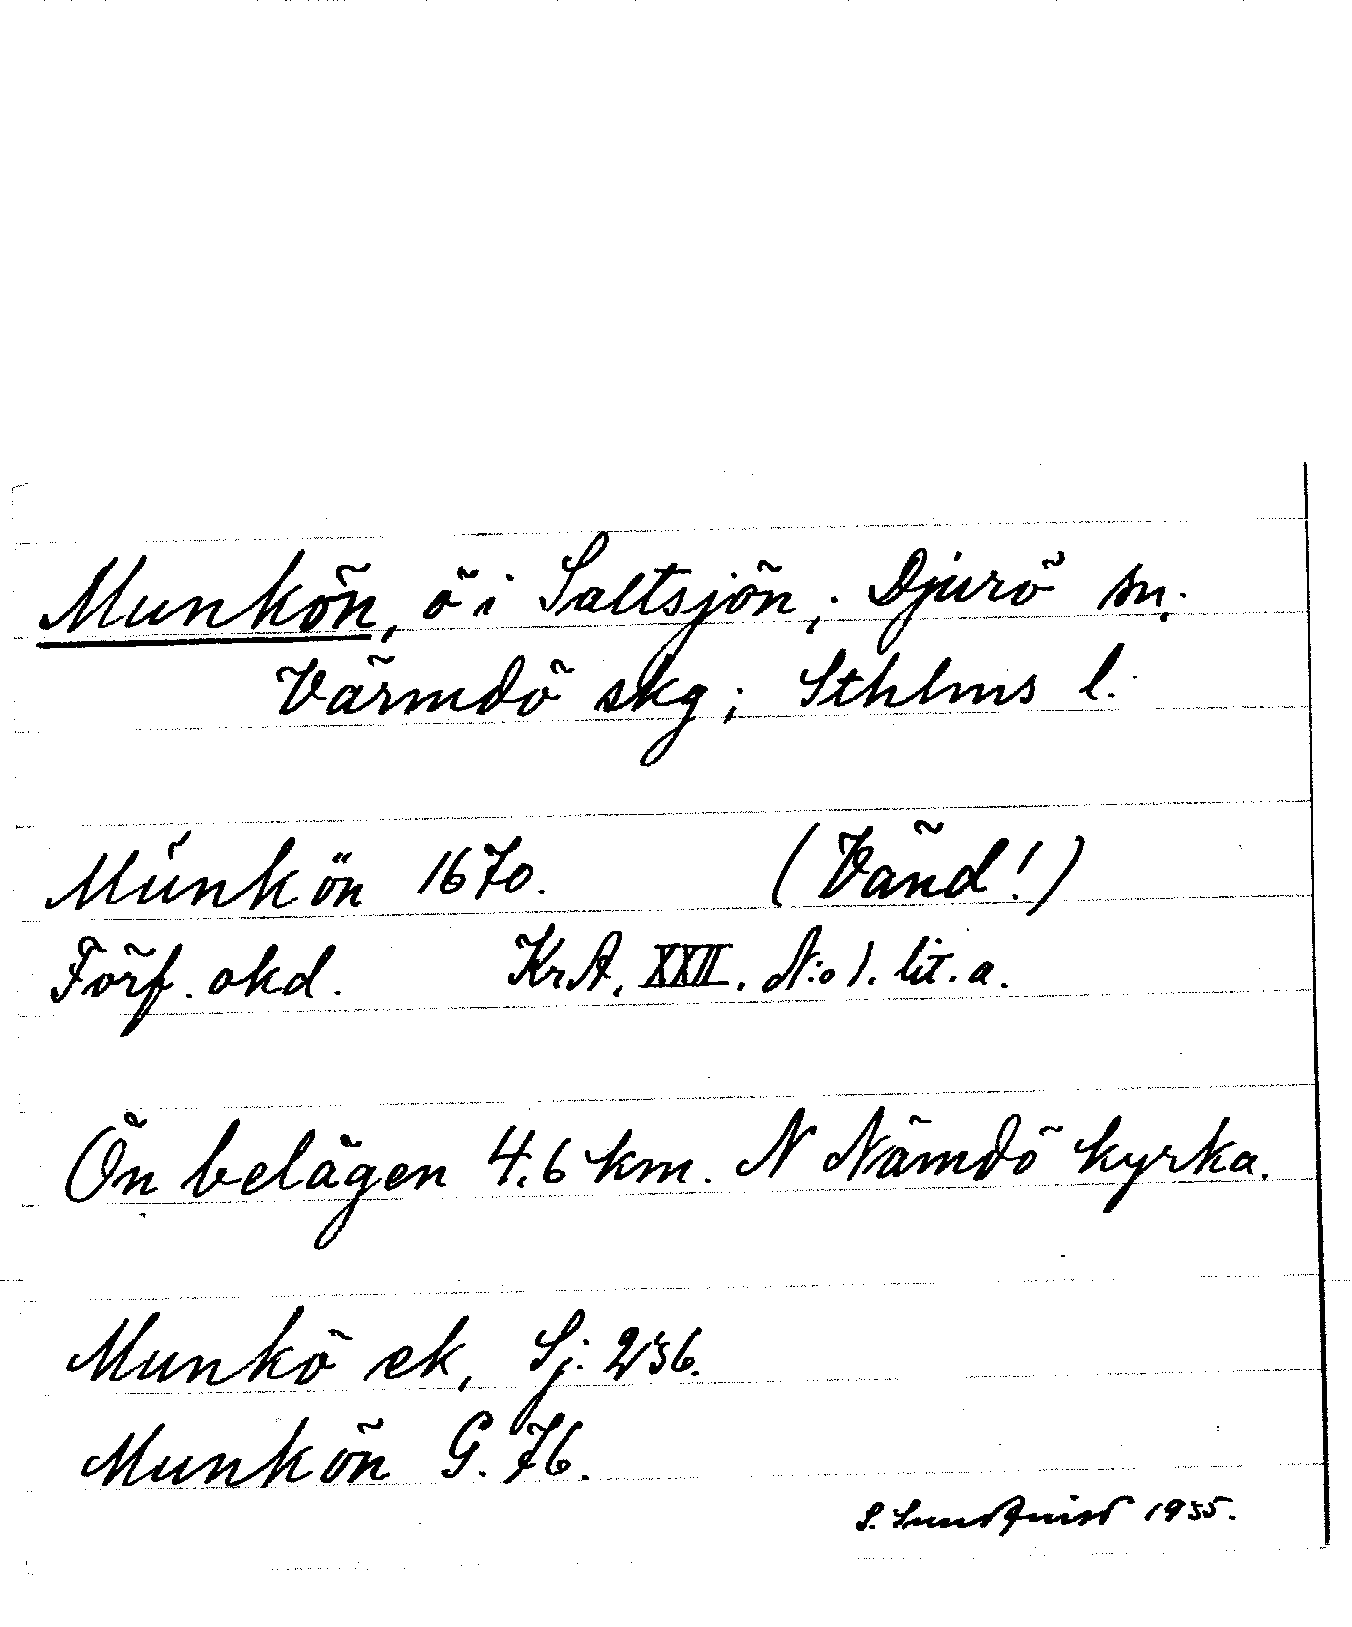 Munkön, ö i Saltsjön; Djurö sn.
Värmdö skg; Sthlms l.
Munkön 1670. (Vänd!)
Förf. okd. KrA. XXII. N:o 1. lit. a.
Ön belägen 4.6 km. N Nämdö kyrka.
Munkö ek, Sj. 236.
Munkön G. 76.
S. Lundquist 1935.